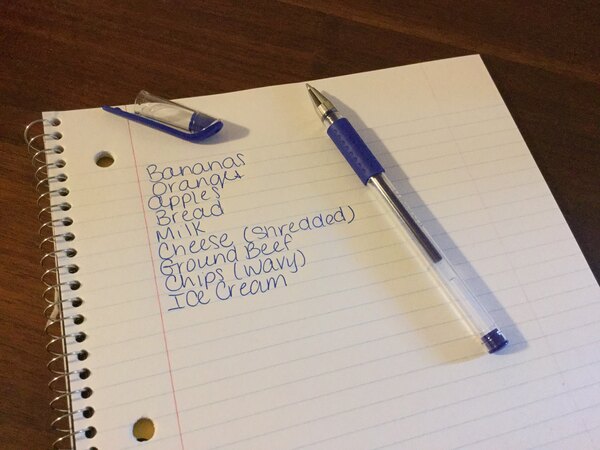 Bananas
Oranges
apples
Bread
Milk
Cheese (Shredded)
Ground Beef
Chips (Wavy)
Ice Cream